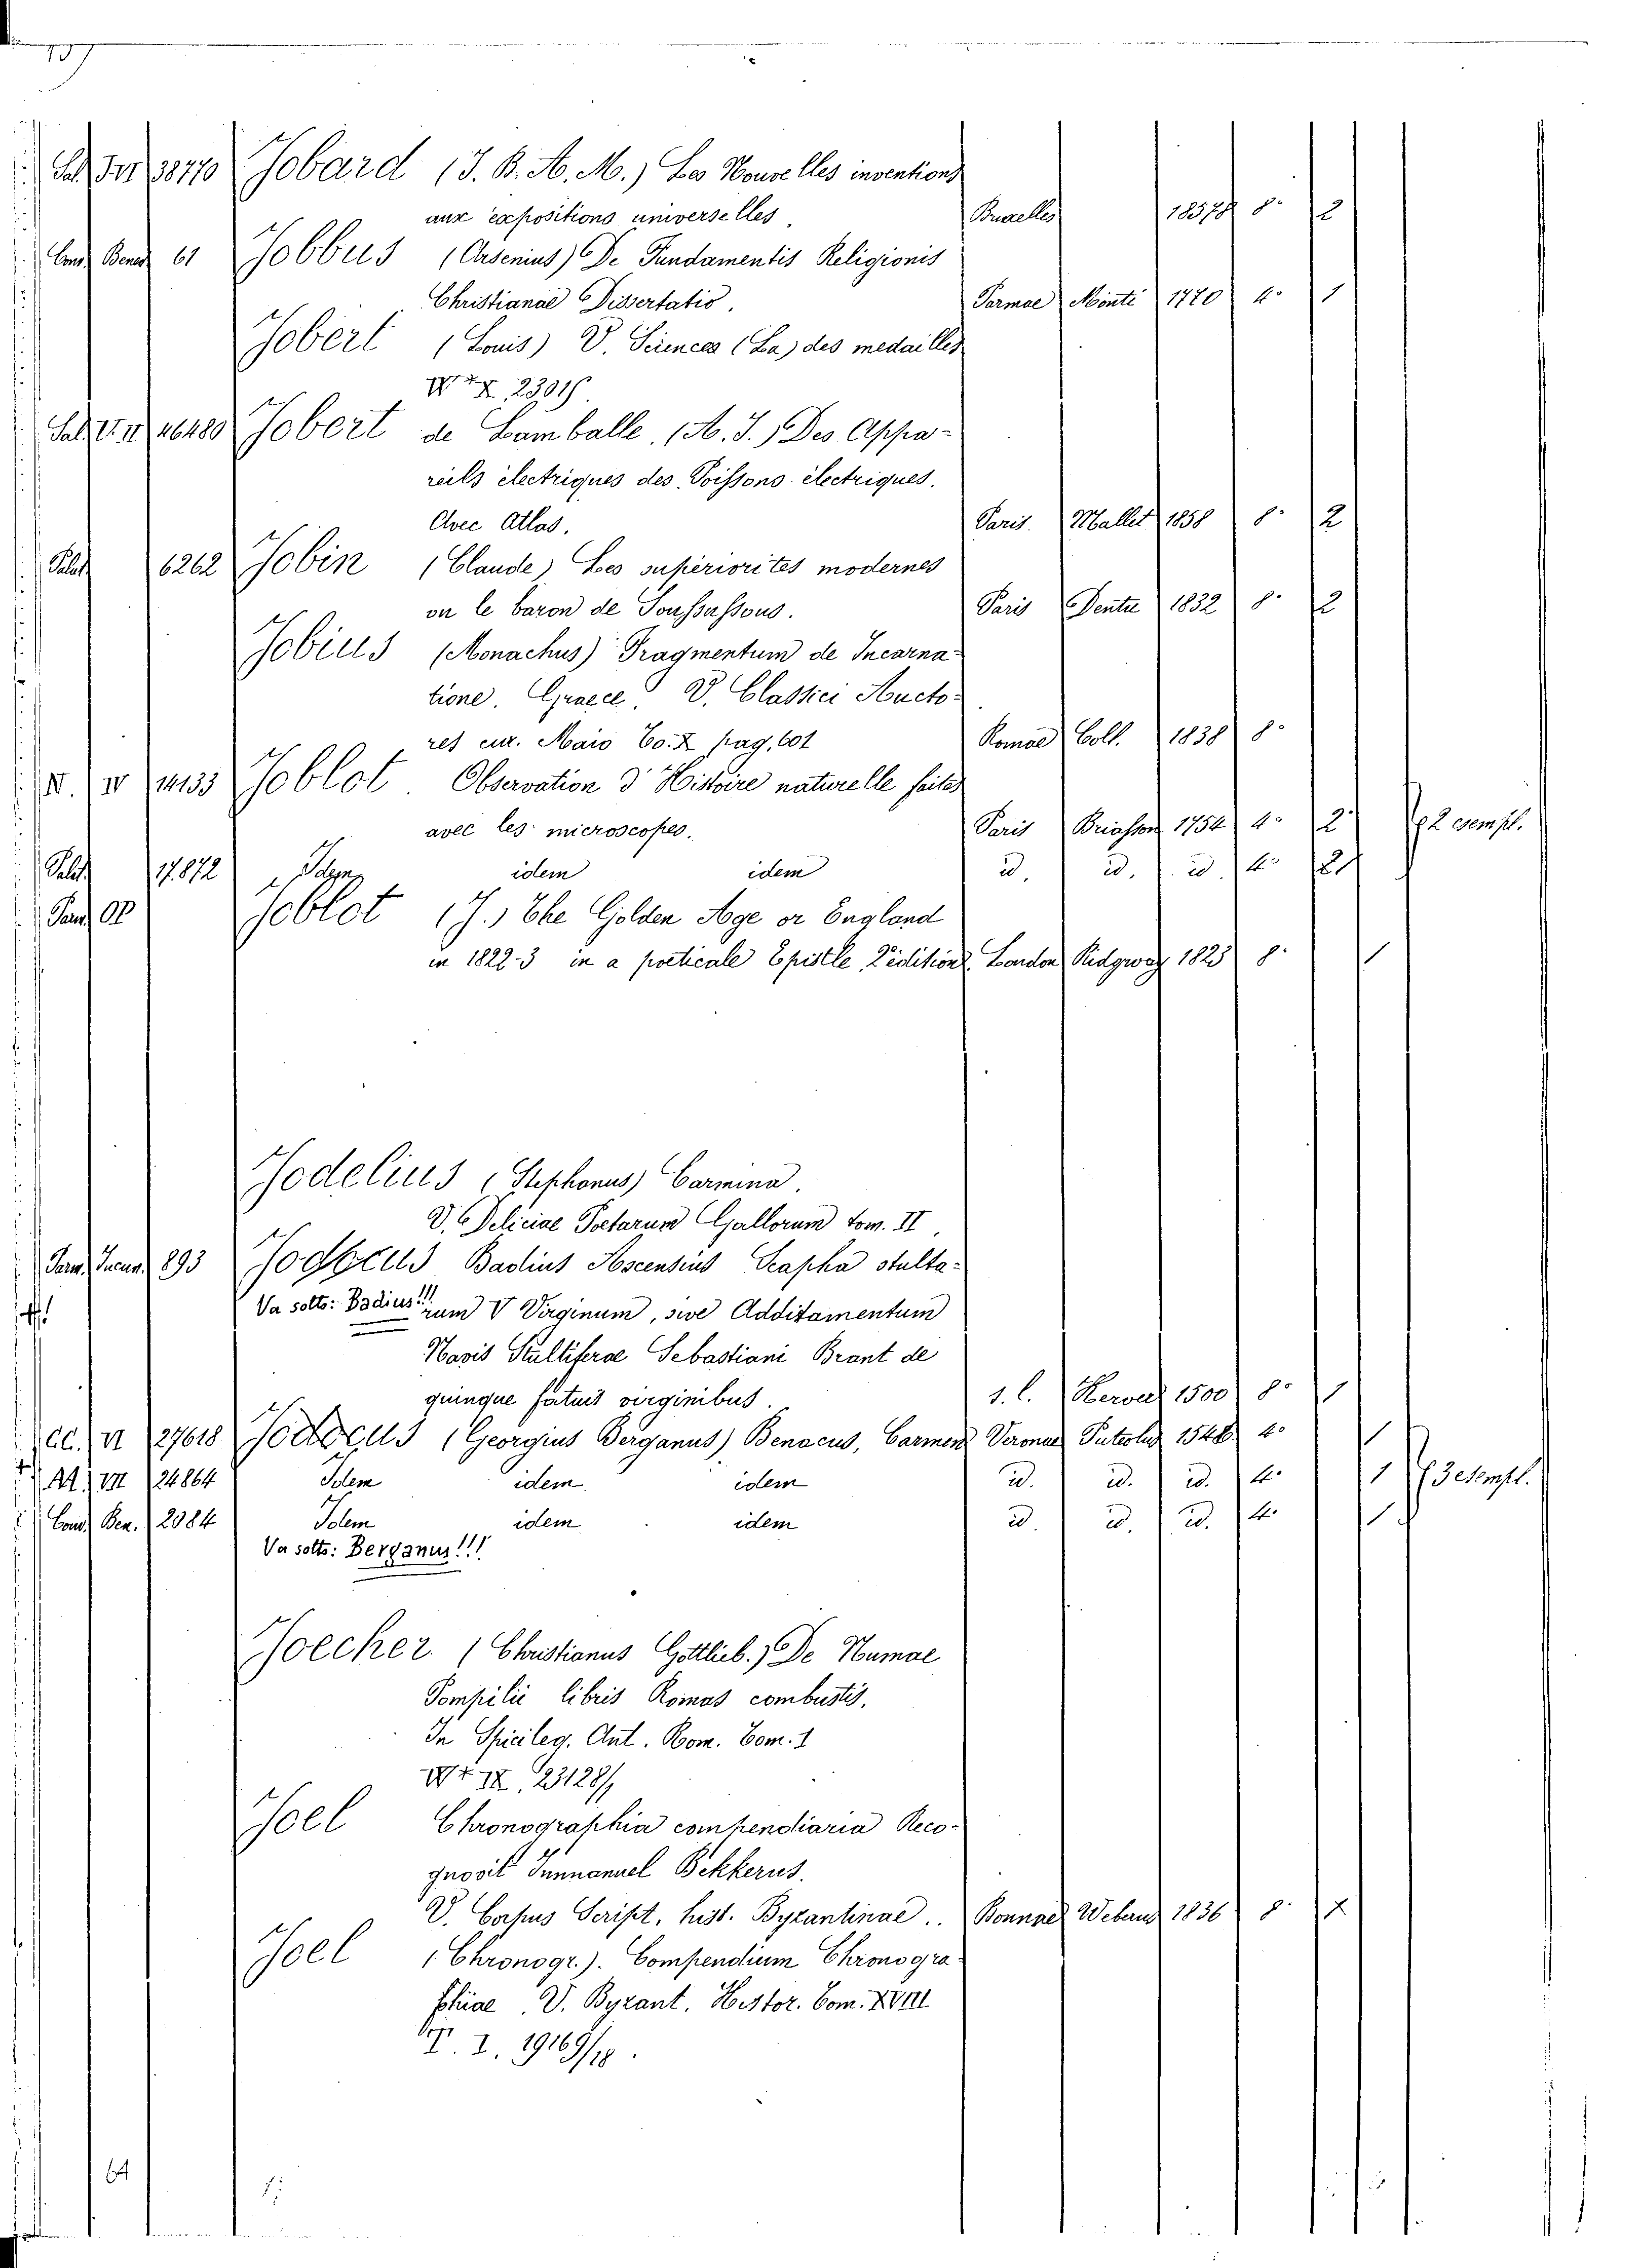 Jobard (J. B. A. M.) Les Nouvelles inventions
38770
aux expositions universelles. Bruxelles 1857 8° 2
Cons. Bened. 61 Jobbus (Arsenius) De Fundamentis Religionis
Christianae Dissertatio. Parmae Monti 1770 4° 1
Jobert (Louis) V. Sciences (La) des medailles
Sal. V. II 26480 Jobert de Lamballe. (A. J.) Des Appa-
reils électriques des Poissons électriques.
Avec Atlas. Paris. Mallet 1858 8° 2
Palat. 6262 Jobin (Claude) Les supériorités modernes
ou le baron de Paris Dentu 1832 8° 2
Jobius (Monachus) Fragmentum de Incarna-
tione. Graece. V. Classici Aucto-
res cur. Maio To. X pag. 601 Romae Coll. 1838 8°
IV 14133 Joblot. Observation d'Histoire naturelle faites
avec les microscopes. Paris Briasson 1754 4° 2 2 esempl.
Palat. 17.872 Idem idem idem id. id. id. 4° 2
Joblot (J.) The Golden Age or England
in 1822-3 in a poeticale Epistle 2 edition. London Ridgway 1823 8° 1
Jodelius (Stephonus) Carmina.
V. Deliciae Poetarum Gallorum tom. II.
893 Jodocus Badius Ascensius Scapha stulta-
Va sotto: Badius!!! rum V Virginum, sive Additamentum
Navis Stultiferae Sebastiani Brant de
quinque fatuis virginibus. s. l. 1500 8° 1
CC. VI 27618 Jodocus (Georgius Berganus) Benacus, Carmen Veronae 1546 4° 1
AA. VIII 24864 Idem idem idem id. id. id. 4° 1 3 esempl.
Cons. Ben. 2084 Idem idem idem id. id. id. 4° 1
Va sotto: Berganus!!!
Joecher (Christianus Gottlieb.) De Numae
Pompilii libris Romas combustis.
In Spicileg. Ant. Rom. Tom. 1
Joel Chronographia compendiaria Reco-
gnovit Immanuel Bekkerus.
V. Corpus Script. hist. Byzantinae.. Bonnae Weberus 1836 8°
Joel (Chronogr.). Compendium Chronogra-
phiae. V. Byzant. Histor. Tom. XVIII
T. I. 19169/18.